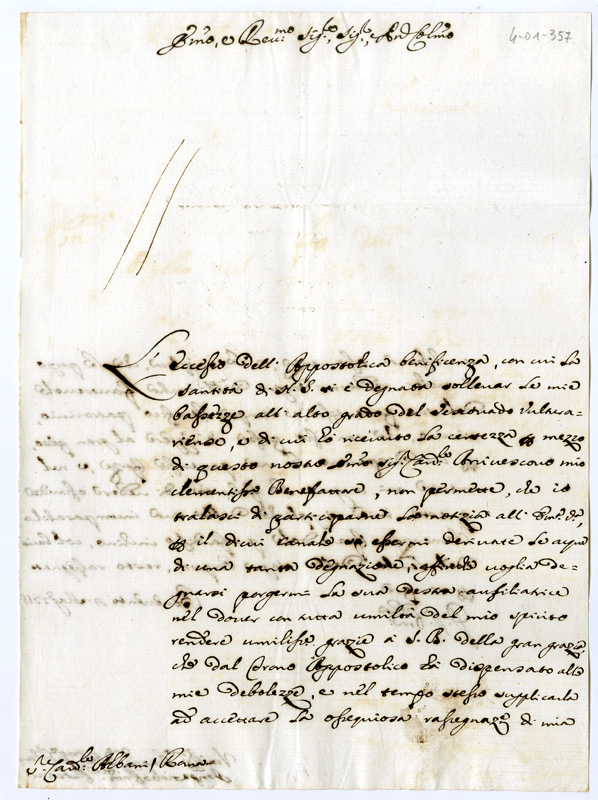 Emo, e Revmo Sigre, Sigre, e Prõn Colmo
4-01-357
L'Eccesso dell'Appostolica beneficenza, con cui la
santità di N. S. si è degnata sollevar le mie
bassezze all'alto grado del Vescovado
e di cui hò ricevuto la certezza mezzo
di questo nostro Emo Sigr Cardle Arcivescovo mio
clementissmo Benefattore, non permette, che io
tralasci di participarne la notizia all'
il di cui canale essermi derivate le acque
di una tanta degnazione, affinche voglia de-
gnarsi porgermi la sua destra ausiliatrice
nel dover con tutta umiltà del mio spirito
rendere umilisse grazie a S. B. della gran grazia
che dal Trono Appostolico hà dispensato alle
mie debolezze, e nel tempo stesso supplicarla
ad accettare la ossequiosa rassegnaze di mia
Sr Cardle Albani / Roma